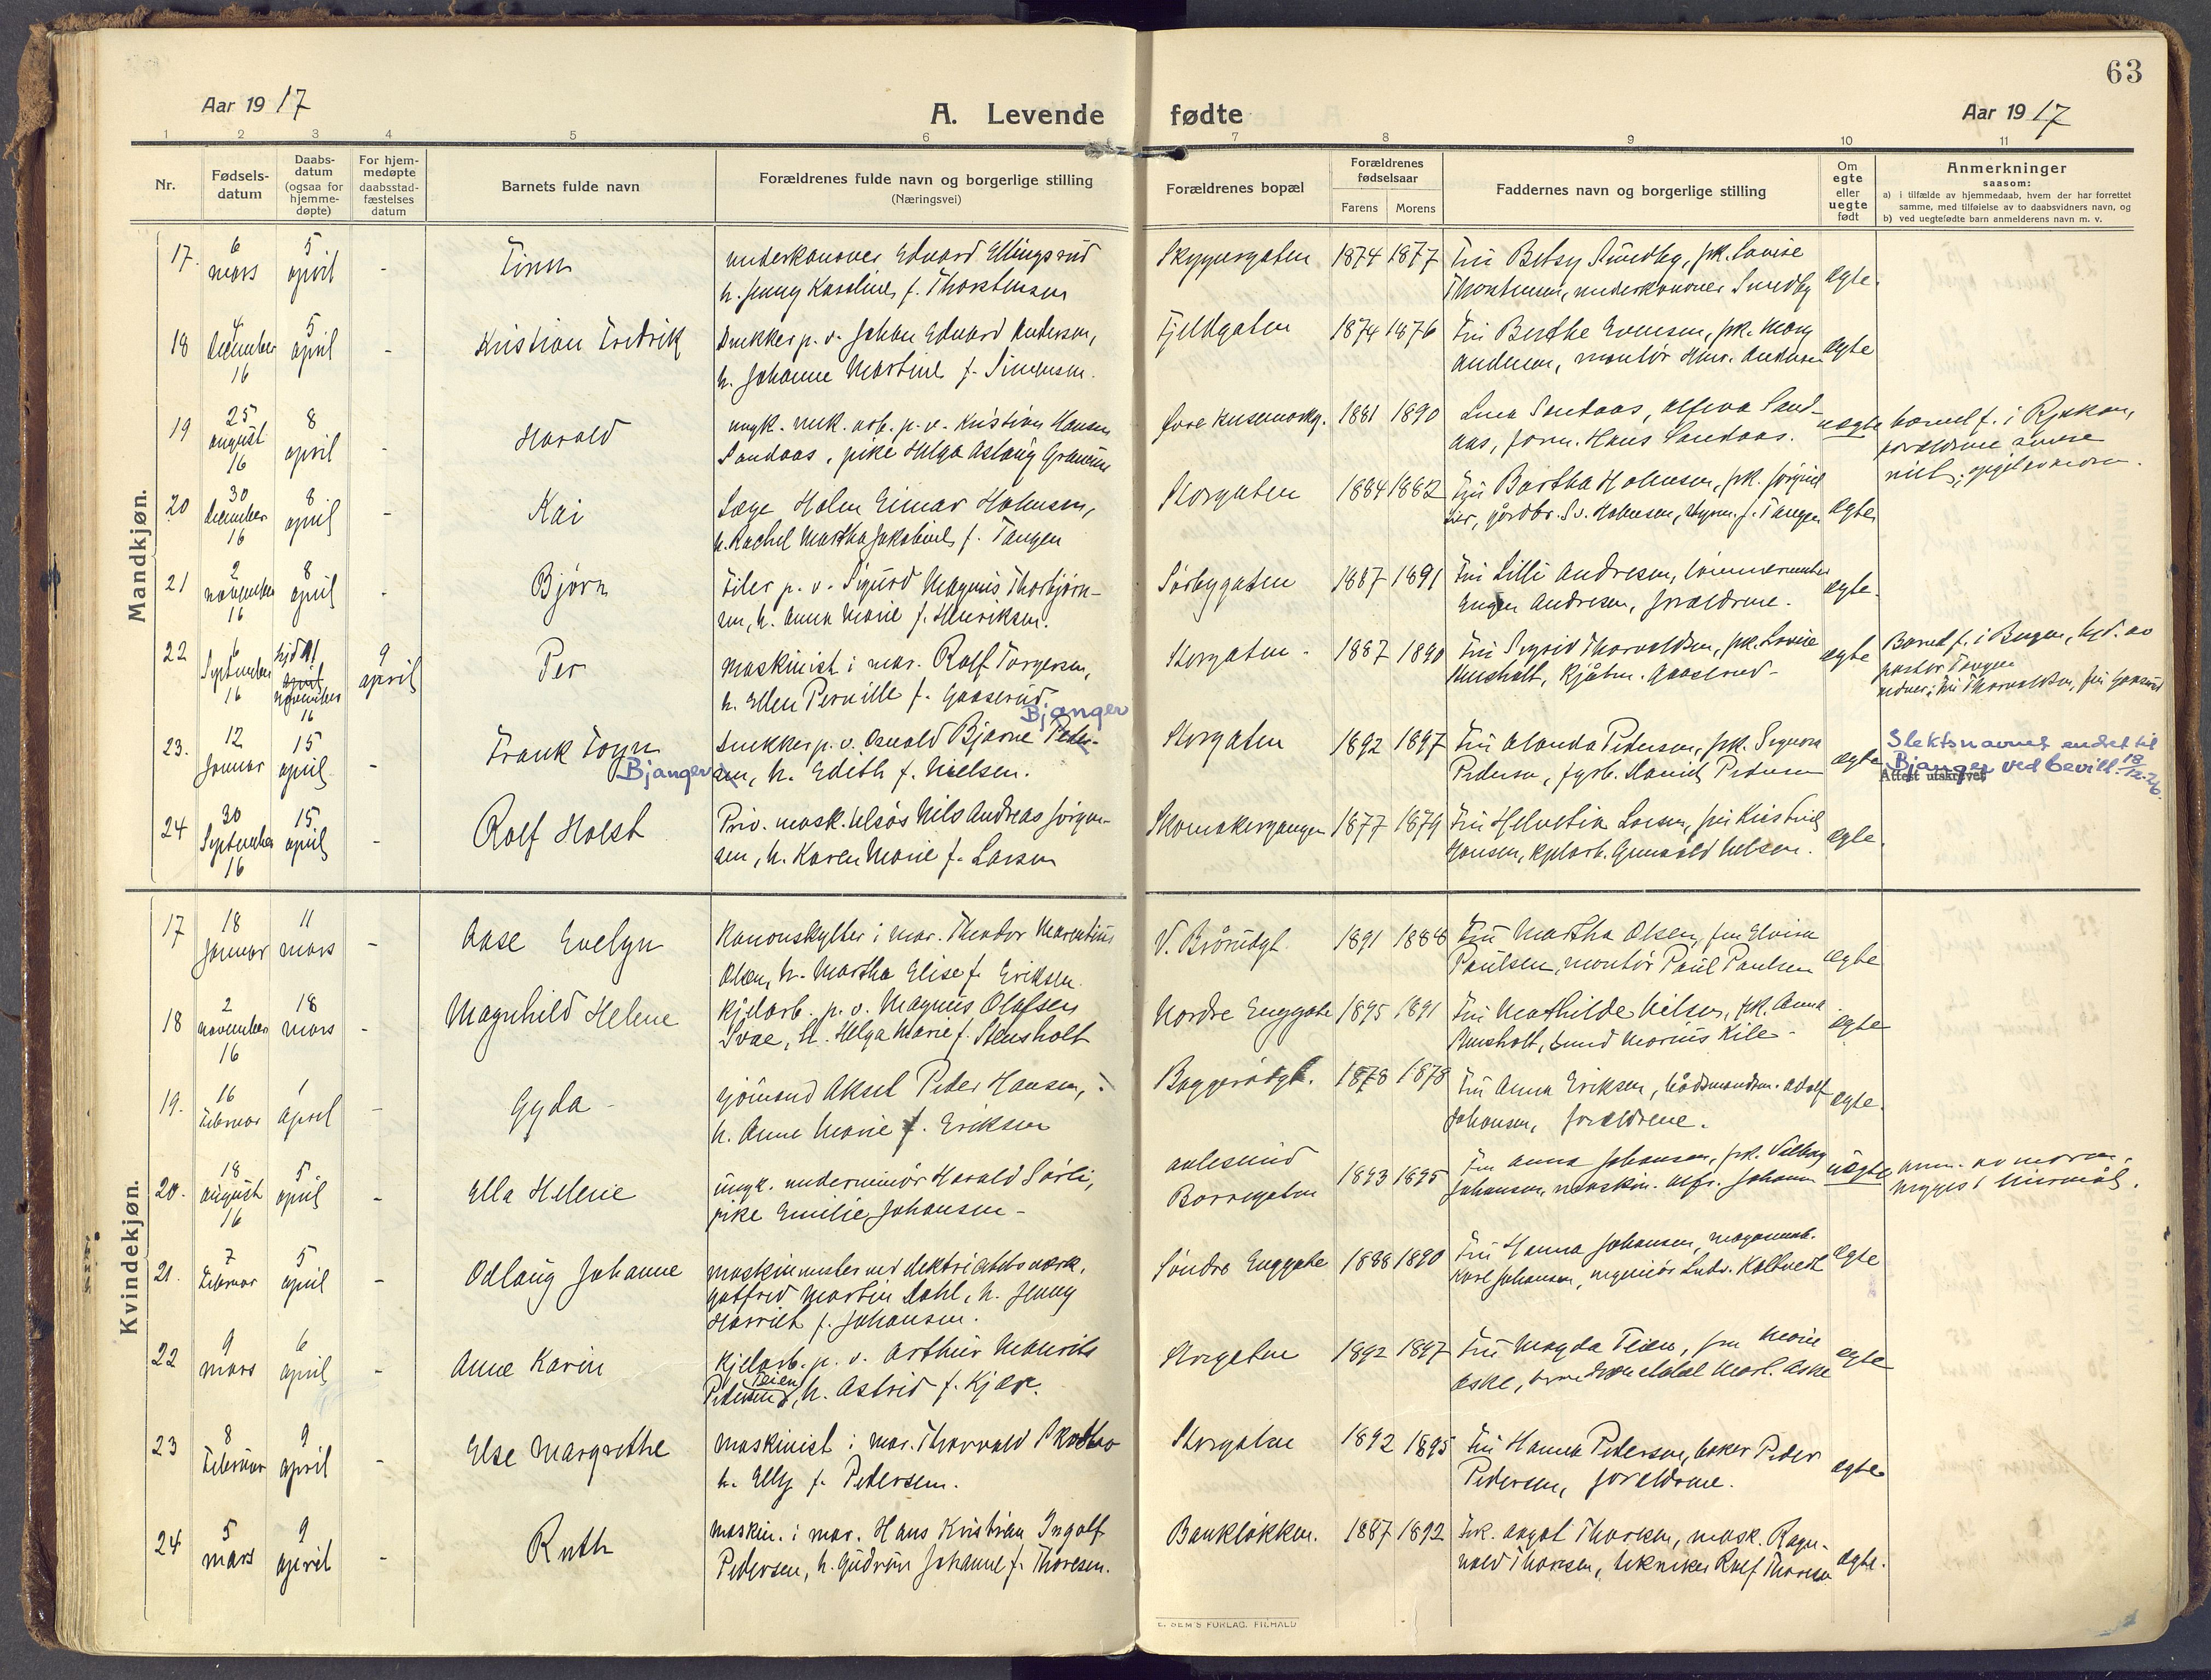 63
Aar 1917
A. Levende fødte
Aar 1917
1 2 3 4 5 6 7 8 9 10 11
Nr.
Fødsels-
datum
Daabs-
datum
(ogsaa for
hjemme-
døpte)
For hjem-
medøpte
daabsstad-
fæstelses
datum
Barnets fulde navn
Forældrenes fulde navn og borgerlige stilling
(Næringsvei)
Forældrenes bopæl
Forældrenes
fødselsaar
Farens Morens
Faddernes navn og borgerlige stilling
Om
egte
eller
uegte
født
Anmerkninger
saasom:
a) i tilfælde av hjemmedaab, hvem der har forrettet
samme, med tilføielse av to daabsvidners navn, og
b) ved uegtefødte barn anmelderens navn m. v.
Mandkjøn.
17. 6 mars 5 april - Finn
underkanoner Edvard Ellingsrud
h. Jenny Karoline f. Thorstensen
Skyggesgaten 1874 1877
Fru Betsy Sundby, pk. Lovise
Thorstensen, underkanoner Sundby
egte.
18 4 december 16 5 april - Kristian Fredrik
Snekker p. v. Johan Edvard Andersen,
h. Johanne Martine f. Simensen.
Fjeldgaten 1874 1876
Fru Berthe Evensen, pk. Mary
Andersen, montør Henr. Andersen
egte
19 25 august 16 8 april - Harald
ungk. mek. arb. p. v. Kristian Hansen
Sandaas, pike Helga Aslaug
1881 1890
Sandaas, Sand-
aas, Hans Sandaas.
uegte
barnet f. i Rjukan,
forældrene
20 30 december 16 8 april - Kai
Læge Holm Einar Holmsen,
h. Rachel Martha Jakobine f. Tangen
Storgaten 1884 1882
Fru Bertha Holmsen, pk.
gårdbr. Holmsen, f. Tangen
egte
21 2 november 16 8 april - Bjørn
Filer p. v. Sigurd Magnus Thorbjørn-
sen, h. Anna Marie f. Henriksen.
Sørbygaten 1887 1891
Fru Lilli Andresen, tømmermester
Andresen, forældrene.
egte.
22 6 September 16 hjd november 16 9 april Per
maskinist i mar. Rolf Torgersen,
h. Ellen Pernille f. Gaaserud.
Storgaten - 1887 1890
Fru Sigrid Thorvaldsen, pk. Lovise
Stensholt, Gaaserud -
egte
Barnet f. i Bergen, hjd. av
pastor Tangen
vidner: fru Thorvaldsen, fru Gaaserud
23. 12 Januar 15 april - Frank Foyn Bjanger
Snekker p. v. Osvald Bjarne Peder-
sen, h. Edith f. Nielsen.
Bjanger
Storgaten 1892 1897
Fru Alanda Pedersen, pk. Signora
Pedersen, fyrb. Daniel Pedersen
egte
Slektsnavnet endret til
Bjanger ved bevill. 18/12-26.
Attest utskrevet
24 30 September 16 15 april - Rolf Holst
Priv. mask. Nils Andreas Jørgen-
sen, h. Karen Marie f. Larsen
Skomakergangen 1877 1879
Fru Helvetia Larsen, fru Kristine
Hansen, kjelarb. Nelsen.
egte.
Kvindekjøn.
17 18 Januar 11 mars - Aase Evelyn
Kanonskytter i mar. Theodor Marentius
Olsen, h. Martha Elise f. Eriksen.
V. Brårudgt 1891 1888
Fru Martha Olsen, fru Elvira
Paulsen, montør Paul Paulsen
egte
18 2 november 16 18 mars - Magnhild Helene
Kjelarb. p. v. Magnus Olafsen
Svae, h. Helga Marie f. Stensholt
Nordre Enggate 1895 1891
Fru Mathilde Nilsen, pk. Anna
Stensholt, Marius Kile -
egte
19. 16 Februar 1 April - Gyda -
sjømand Aksel Peder Hansen,
h. Anne Marie f. Eriksen
Baggerødgt. 1878 1878
Fru Anna Eriksen, bådsmandsm. Adolf
Johansen, forældrene.
egte.
20. 18 august 16 5 april - Ella Helene
ungk. underminør Harald Sørli,
pike Emilie Johansen -
Aalesund
Borregaten
1893 1895
Fru Anna Johansen, pk. Valborg
Johansen, maskin. Johansen
uegte
anm. av moren.
21. 7 Februar 5 april - Odlaug Johanne
maskinmester ved elektricitetsværk.
Gotfred Martin Dahl, h. Jenny
Harriet f. Johansen.
Søndre Enggate 1888 1890
Fru Hanna Johansen,
Karl Johansen, ingeniør Ludv. Kaltvedt
egte
22 9 mars 6 april - Anne Karin
Kjelarb. p. v. Arthur Maurits
Teien
Pedersen, h. Astrid f. Kjær.
Storgaten 1892 1897
Fru Magda Teien, fru Marie
Aske, Aske
egte
23 8 Februar 9 april - Else Margrethe
maskinist i mar. Thorvald
h. Elly f. Pedersen.
Storgaten 1892 1895
Fru Hanna Pedersen, baker Peder
Pedersen, forældrene.
egte
24 5 mars 9 april - Ruth
maskin. i mar. Hans Kristian Ingolf
Pedersen, h. Gudrun Johanne f. Thoresen.
Bankløkken. 1887 1892
Frk. Aagot Thoresen, mask. Ragn-
vald Thoresen, tekniker Rolf Thoresen
egte.
E. SEM'S FORLAG, FR.HALD